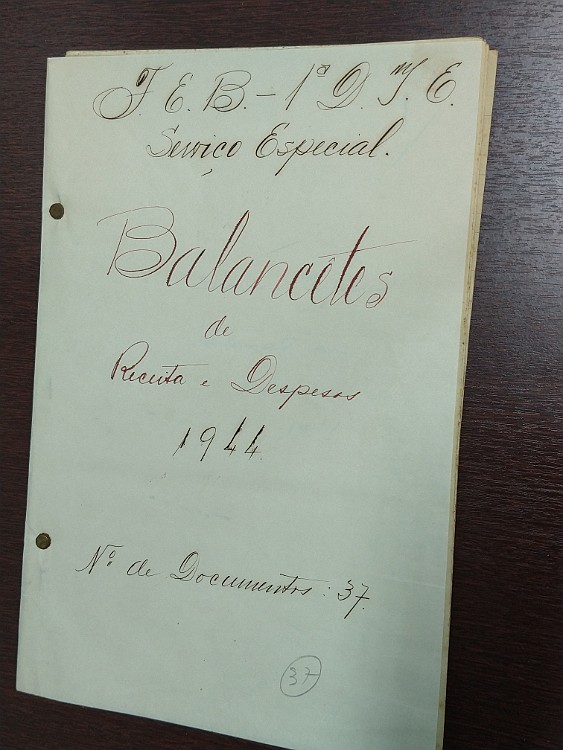 F. E. B. - 1ª D. I. E.
Serviço Especial.
Balancêtes
de
Receita e Despesas
1944
Nº de Documentos: 37.
37